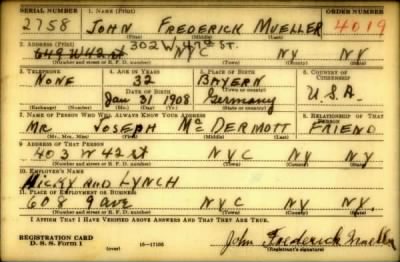 SERIAL NUMBER 1. NAME (Print) ORDER NUMBER
2758 JOHN FREDERICK MUELLER 4019
(First) (Middle) (Last)
2. ADDRESS (Print) 302 W 47th ST.
649 W 42 st NYC NY NY
(Number and street or R. F. D. number) (Town) (County) (State)
3. TELEPHONE 4. AGE IN YEARS 5. PLACE OF BIRTH 6. COUNTRY OF CITIZENSHIP
NONE 32 BAYERN
DATE OF BIRTH (Town or county)
Jan 31 1908 Germany U.S.A.
(Exchange) (Number) (Mo.) (Day) (Yr.) (State or country)
7. NAME OF PERSON WHO WILL ALWAYS KNOW YOUR ADDRESS 8. RELATIONSHIP OF THAT PERSON
MR JOSEPH McDERMOTT FRIEND
(Mr., Mrs., Miss) (First) (Middle) (Last)
9. ADDRESS OF THAT PERSON
403 W 42 st NYC NY NY
(Number and street or R. F. D. number) (Town) (County) (State)
10. EMPLOYER'S NAME
AND LYNCH
11. PLACE OF EMPLOYMENT OR BUSINESS
608 9 ave NYC NY NY.
(Number and street or R. F. D. number) (Town) (County) (State)
I AFFIRM THAT I HAVE VERIFIED ABOVE ANSWERS AND THAT THEY ARE TRUE.
REGISTRATION CARD
D. S. S. Form 1 (over) 16-17105 John Frederick Mueller
(Registrant's signature)